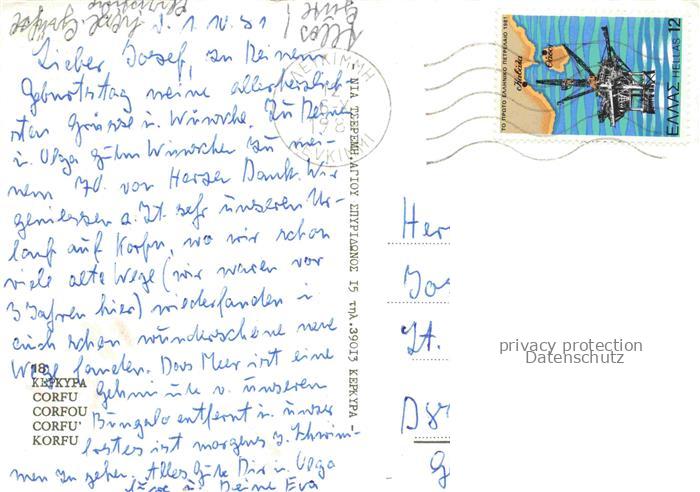 d. 1.10.81
Lieber Josef, zu Deinem
Geburtstag meine allerherzlich-
sten Grüsse u. Wünsche. Zu Deinen
u. Olga guten Wünschen zu mei-
nem 70. von Herzen Dank. Wir
geniessen z. Zt. sehr unseren Ur-
laub auf Korfu, wo wir schon
viele alte Wege (wir waren vor
3 Jahren hier) wiederfanden u
auch schon wunderschöne neue
Wege fanden. Das Meer ist eine
Gehminute v. unserem
Bungalo entfernt u. unser
erstes ist morgens z. Schwim-
men zu gehen. Alles Gute Dir u. Olga
Deine Eva
Alles Gute!
18
ΚΕΡΚΥΡΑ
CORFU
CORFOU
CORFU'
KORFU
ΝΙΑ ΤΣΕΡΕΜΗ, ΑΓΙΟΥ ΣΠΥΡΙΔΩΝΟΣ 15 τηλ. 39013 ΚΕΡΚΥΡΑ -
ΛΕΥΚΙΜΜΗ
LEVKIMMI
ΤΟ ΠΡΩΤΟ ΕΛΛΗΝΙΚΟ ΠΕΤΡΕΛΑΙΟ 1981
Καβάλα
Θάσος
ΕΛΛΑΣ HELLAS 12
Her
Jos
St.
D 8
privacy protection
Datenschutz